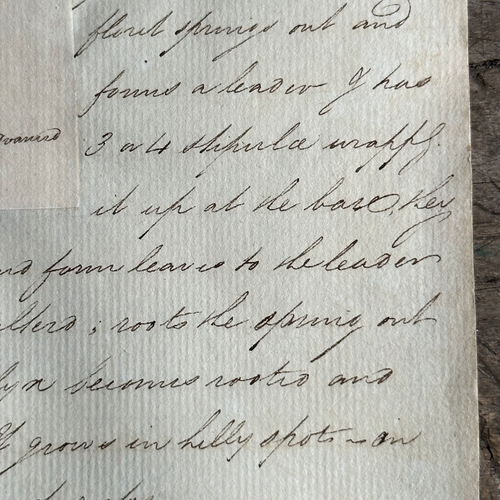 floret springs out and
forms a leader I has
3 or 4 stipulæ wrapps.
it up at the base, they
nd form leaves to the leader
; roots the spring out
becomes rooted and
It grows in hilly spots - on